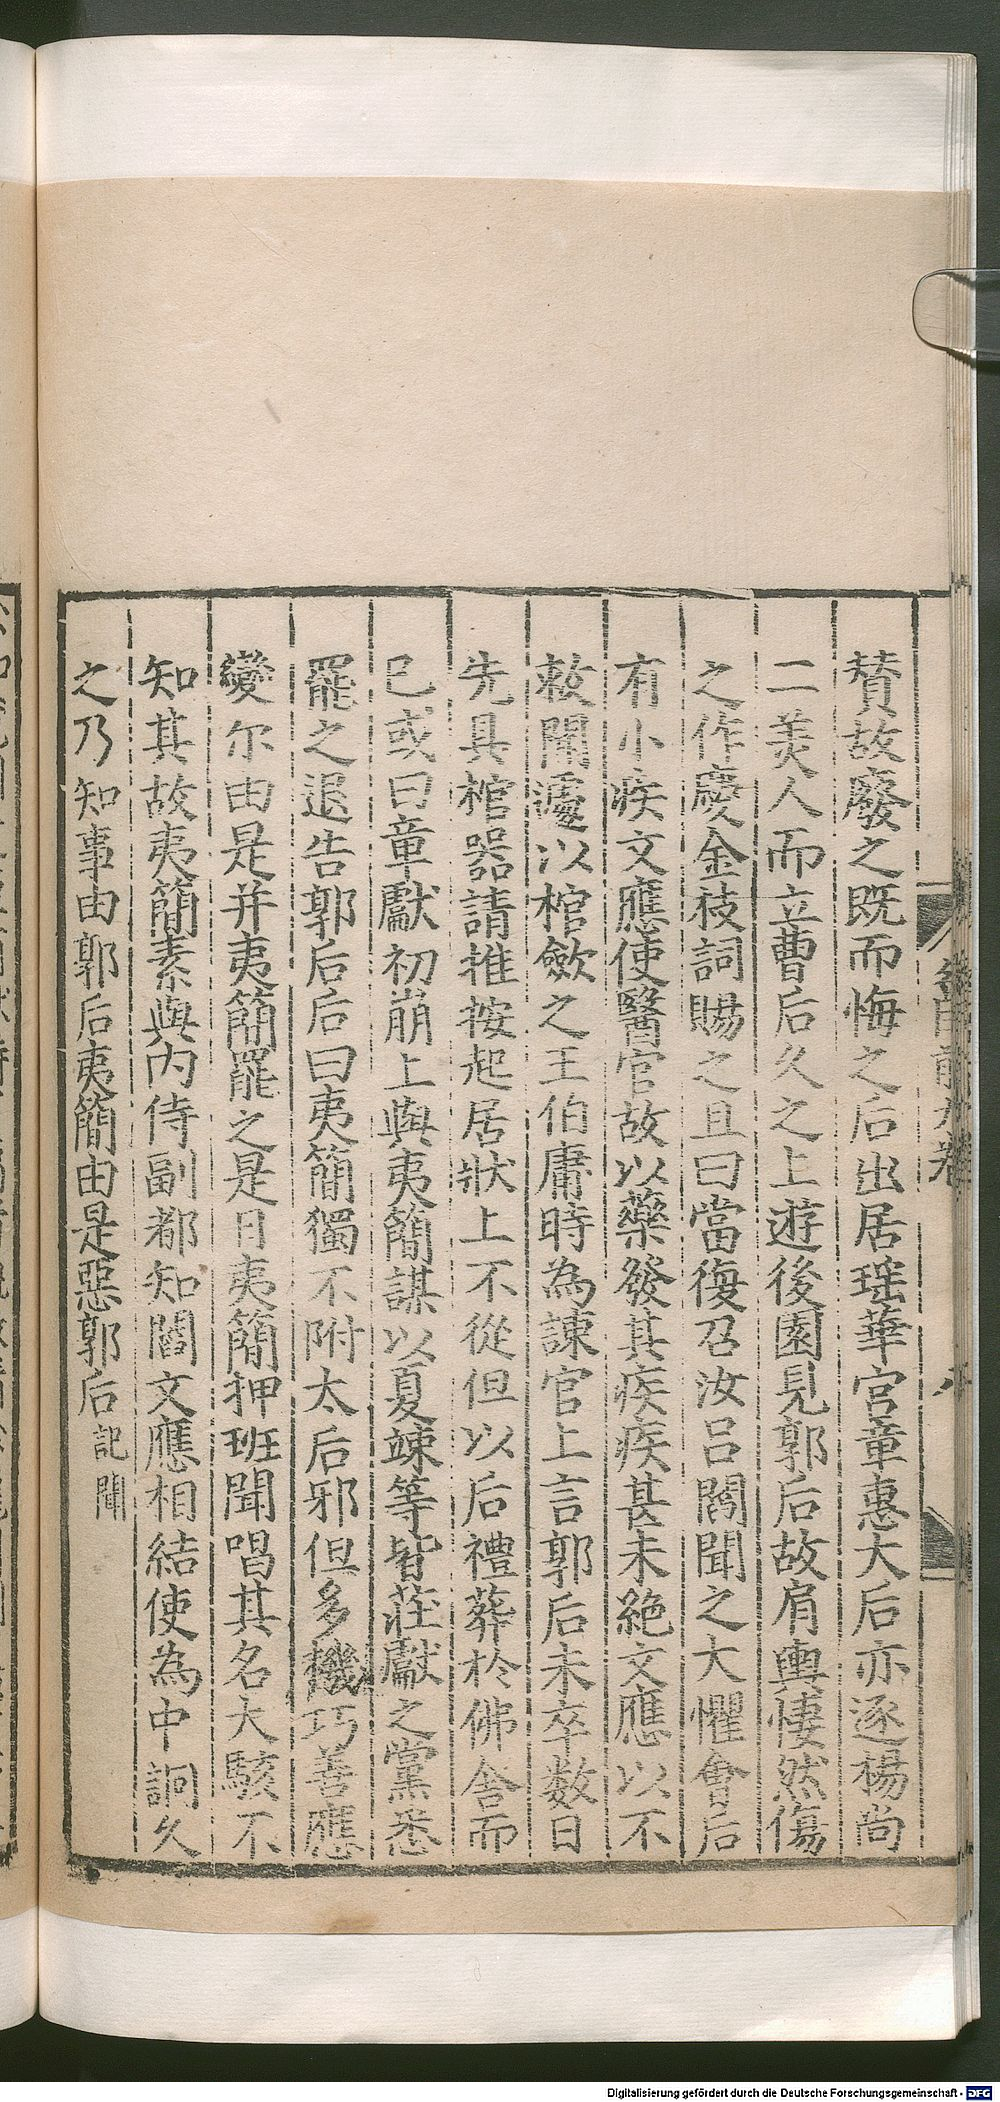 賛故廢之既而悔之后出居瑶華宮章惠大后亦逐楊尚
二美人而立曹后久之上遊後園見郭后故肩輿悽然傷
之作慶金枝詞賜之且曰當復召汝吕閻聞之大懼會后
有小疾文應使醫官故以藥發其疾疾甚未絶文應以不
救聞遽以棺斂之王伯庸時為諫官上言郭后未卒数日
先具棺器請推按起居狀上不從但以后禮葬於佛舍而
已或曰章獻初崩上與夷簡謀以夏竦等皆荘獻之黨悉
罷之退告郭后后曰夷簡獨不附太后邪但多機巧善應
變尔由是并夷簡罷之是日夷簡押班聞唱其名大駭不
知其故夷簡素與内侍副都知閻文應相結使為中詗久
之乃知事由郭后夷簡由是惡郭后記聞
Digitalisierung gefördert durch die Deutsche Forschungsgemeinschaft - DFG